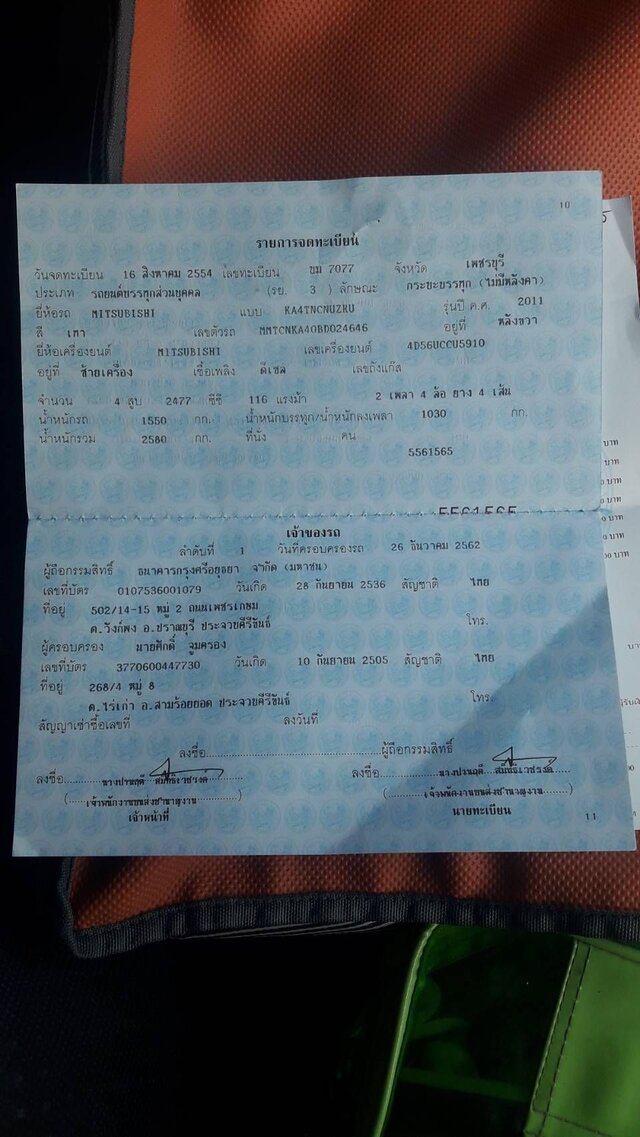 10
รายการจดทะเบียน
วันจดทะเบียน 16 สิงหาคม 2554 เลขทะเบียน บม 7077 จังหวัด เพชรบุรี
ประเภท รถยนต์บรรทุกส่วนบุคคล (รย. 3 ) ลักษณะ กระบะบรรทุก (ไม่มีหลังคา)
ยี่ห้อรถ MITSUBISHI แบบ KA4TNCNUZRU รุ่นปี ค.ศ. 2011
สี เทา เลขตัวรถ MMTCNKA40BD024646 อยู่ที่ หลังขวา
ยี่ห้อเครื่องยนต์ MITSUBISHI เลขเครื่องยนต์ 4D56UCCU5910
อยู่ที่ ซ้ายเครื่อง เชื้อเพลิง ดีเซล เลขถังแก๊ส
จำนวน 4 สูบ 2477 ซีซี 116 แรงม้า 2 เพลา 4 ล้อ ยาง 4 เส้น
น้ำหนักรถ 1550 กก. น้ำหนักบรรทุก/น้ำหนักลงเพลา 1030 กก.
น้ำหนักรวม 2580 กก. ที่นั่ง คน
5561565
5561565
เจ้าของรถ
ลำดับที่ 1 วันที่ครอบครองรถ 26 ธันวาคม 2562
ผู้ถือกรรมสิทธิ์ ธนาคารกรุงศรีอยุธยา จำกัด (มหาชน)
เลขที่บัตร 0107536001079 วันเกิด 28 กันยายน 2536 สัญชาติ ไทย
ที่อยู่ 502/14-15 หมู่ 2 ถนนเพชรเกษม
ต.วังก์พง อ.ปราณบุรี ประจวบคีรีขันธ์ โทร.
ผู้ครอบครอง นายศักดิ์ จูมครอง
เลขที่บัตร 3770600447730 วันเกิด 10 กันยายน 2505 สัญชาติ ไทย
ที่อยู่ 268/4 หมู่ 8
ต.ไร่เก่า อ.สามร้อยยอด ประจวบคีรีขันธ์ โทร.
สัญญาเช่าซื้อเลขที่ ลงวันที่
ลงชื่อ ผู้ถือกรรมสิทธิ์
ลงชื่อ ลงชื่อ
(เจ้าพนักงานขนส่งชำนาญงาน) (เจ้าพนักงานขนส่งชำนาญงาน)
เจ้าหน้าที่ นายทะเบียน
11